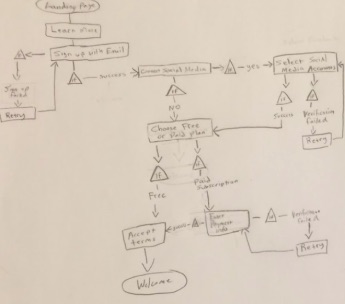 Page
Learn More
Sign up With Email
if
Sign up
Failed
Retry
if
success
Connect Social Media
if
yes
Select Social
Media Accounts
if
NO
if
Success
if
Verification
Failed
Retry
Choose Free
or Paid plan
if
Free
if
Paid
Subscription
Accept
terms
if
Enter
Payment
info
if
Verification
Failed
Retry
Welcome